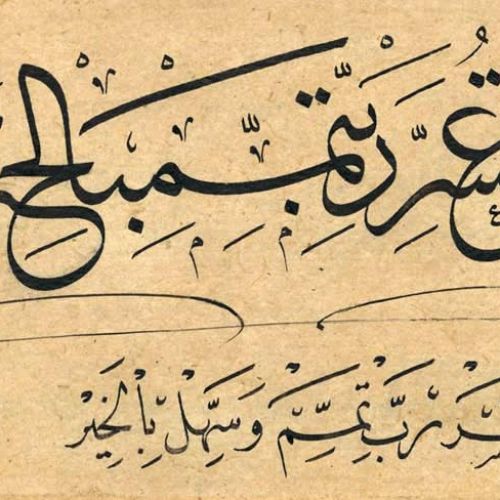 تعسّر ربّ تمّم بالخ
رَبِّ تَمِّمْ وَسَهِّلْ بِالْخَيْرْ